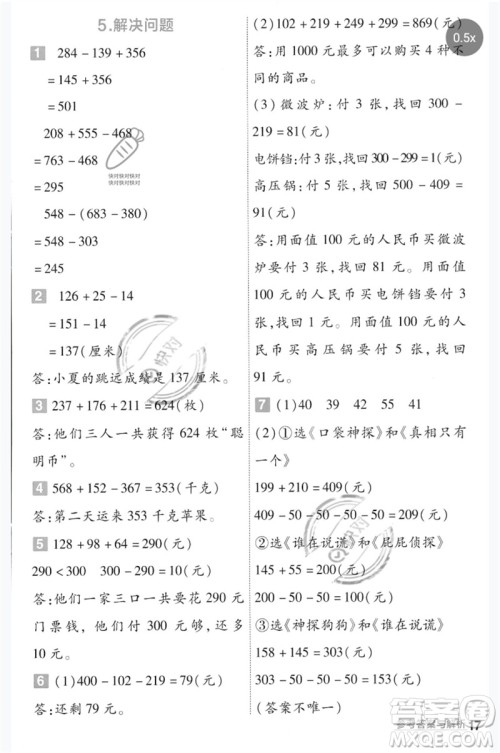 5.解决问题
1 284-139+356
=145+356
=501
208+555-468
=763-468
=295
548-(683-380)
=548-303
=245
2 126+25-14
=151-14
=137(厘米)
答:小夏的跳远成绩是 137 厘米。
3 237+176+211=624(枚)
答:他们三人一共获得 624 枚“聪
明币”。
4 568+152-367=353(千克)
答:第二天运来 353 千克苹果。
5 128+98+64=290(元)
290<300 300-290=10(元)
答:他们一家三口一共要花 290 元
门票钱,他们带 300 元够,还剩
10 元。
6 (1)400-102-219=79(元)
答:还剩 79 元。
(2)102+249+219+299=869(元)
答:用 1000 元最多能买 4 种不
同的商品。
(3)微波炉:付 3 张,找回 300-
219=81(元)
电饼铛:付 3 张,找回 300-299=1(元)
高压锅:付 5 张,找回 500-409=
91(元)
答:用面值 100 元的人民币买微波
炉要付 3 张,找回 81 元。用面值
100 元的人民币买电饼铛要付 3
张,找回 1 元。用面值 100 元的人
民币买高压锅要付 5 张,找回
91 元。
7 (1)40 39 42 55 41
(2)①选《口袋神探》和《真相只有
一个》
199+210=409(元)
409-50-50-50-50=209(元)
②选《谁在说谎》和《屁屁侦探》
145+55=200(元)
200-50-50=100(元)
③选《神探狗狗》和《谁在说谎》
158+145=303(元)
303-50-50-50=153(元)
(答案不唯一)
参考答案与解析 17
0.5x
快对快对快对
快对快对快对
快对
快对